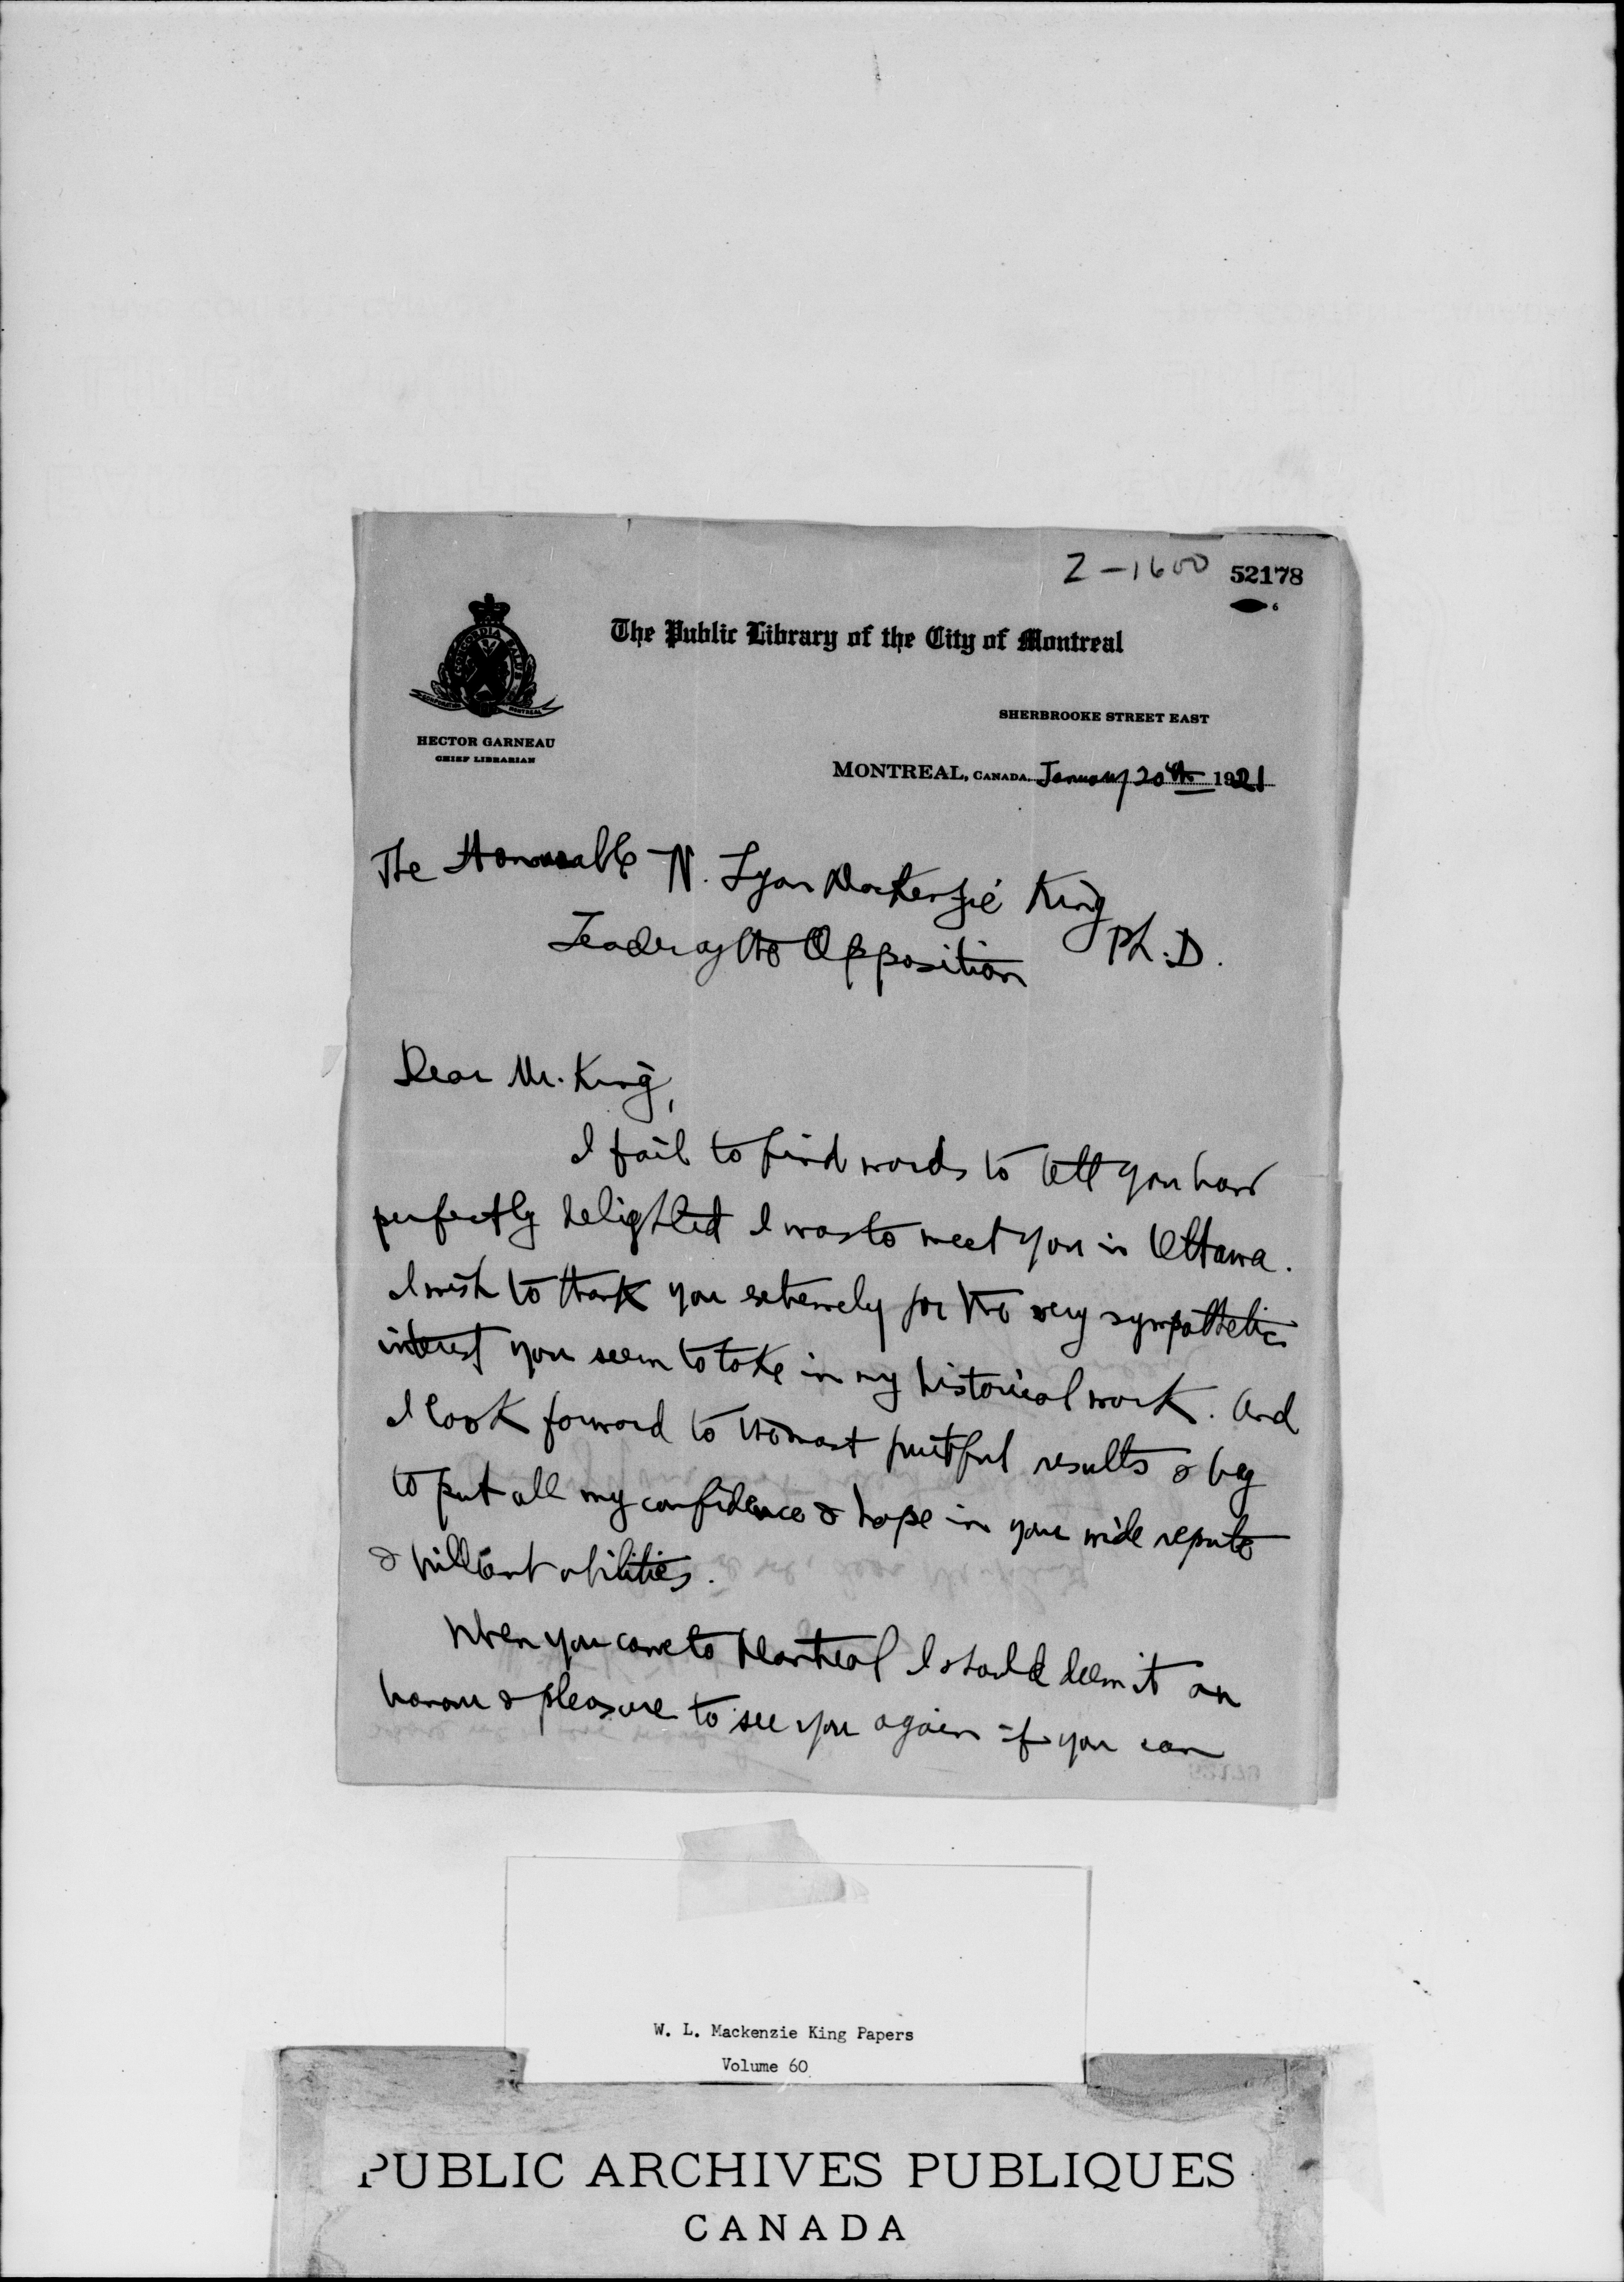 Z-1600 52178
6
The Public Library of the City of Montreal
CONCORDIA SALUS
CORPORATION MONTREAL
SHERBROOKE STREET EAST
HECTOR GARNEAU
CHIEF LIBRARIAN
MONTREAL, CANADA. January 20th 1921
The Honourable W. Lyon Mackenzie King Ph.D.
Leader of the Opposition
Dear Mr. King,
I fail to find words to tell you how
perfectly delighted I was to meet you in Ottawa.
I wish to thank you extremely for the very sympathetic
interest you seem to take in my historical work. And
I look forward to the most fruitful results & beg
to put all my confidence & hope in your wide repute
& brilliant abilities.
When you come to Montreal I should deem it an
honour & pleasure to see you again if you can
W. L. Mackenzie King Papers
Volume 60
PUBLIC ARCHIVES PUBLIQUES
CANADA